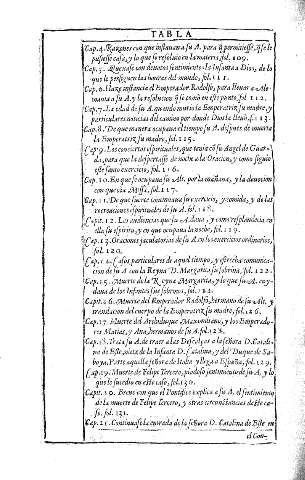 TABLA
Cap. 4. Razones con que instauan a su A. para que permitiesse, se le
pusiesse casa, y lo que se resoluio en la materia, fol. 109.
Cap. 5. Quexase con deuotos sentimientos la Infanta a Dios, de lo
que le persiguen las honras del mundo, fol. 111.
Cap. 6. Haze instancia el Emperador Rodolfo, para lleuar a Ale-
mania a su A. y la resolucion que se tomò en este punto, fol. 112.
Cap. 7. La edad de su A. quando murio la Emperatriz su madre, y
particulares noticias del camino por donde Dios la lleuò, fol. 113.
Cap. 8. De que manera ocupaua el tiempo su A. despues de muerta
la Emperatriz su madre, fol. 115.
Cap. 9. Los conciertos espirituales, que traìa co su Angel de Guar-
da, para que la despertasse de noche a la Oracion, y como seguìa
este santo exercicio, fol. 116.
Cap. 10. En que se ocupaua su Alt. por la mañana, y la deuocion
con que oìa Missa, fol. 117.
Cap. 11. De que suerte continuaua su exercicio, y comida, y de las
recreaciones espirituales de su A. fol. 118.
Cap. 12. Los ardimientos que su A. tenìa, y como resplandecìa en
ella su espiritu, y en que ocupaua la noche, fol. 119.
Cap. 13. Oraciones jaculatorias de su A. en los exercicios ordinarios,
fol. 120.
Cap. 14. Casos particulares de aquel tiempo, y estrecha comunica-
cion de su A. con la Reyna D. Margarita su sobrina, fol. 122.
Cap. 15. Muerte de la Reyna Margarita, y lo que su A. cuy-
daua de los Infantes sus sobrinos, fol. 124.
Cap. 16. Muerte del Emperador Rodolfo, hermano de su Alt. y
translacion del cuerpo de la Emperatriz su madre, fol. 126.
Cap. 17. Muerte del Archiduque Maximiliano, y los Emperado-
res Matias, y Ana, hermanos de su A. fol. 128.
Cap. 18. Trata su A. de traer a las Descalças a la señora D. Catali-
na de Este, nieta de la Infanta D. Catalina, y del Duque de Sa-
boya. Parte aquella señora de Italia y llega a España, fol. 129.
Cap. 19. Muerte de Felipe Tercero, piadoso sentimiento de su A. y lo
que le sucedio en este caso, fol. 130.
Cap. 20. Breue con que el Pontifice explica a su A. el sentimiento
de la muerte de Felipe Tercero, y otras circunstancias de este ca-
so, fol. 131.
Cap. 21. Continuase la entrada de la señora D. Catalina de Este en
el Con-